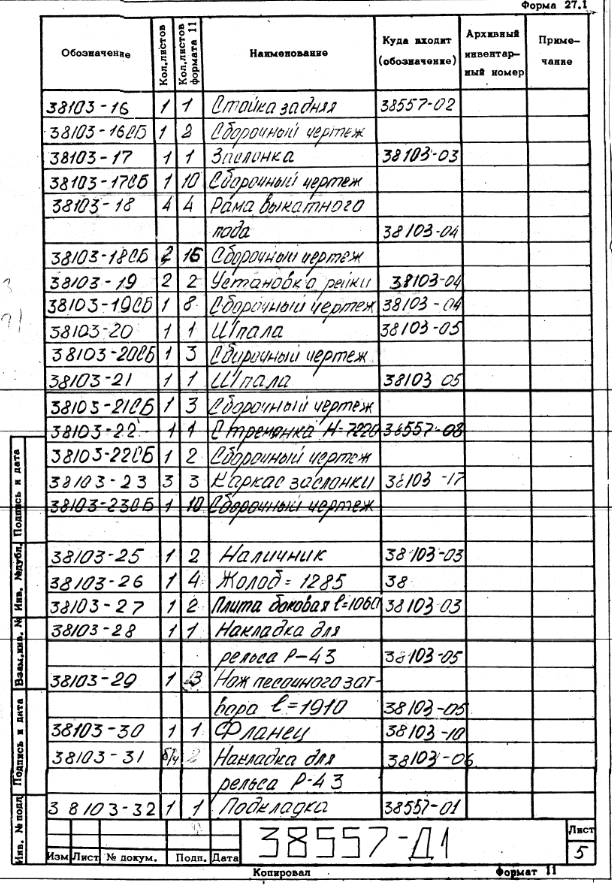 Форма 27.1
Обозначение Кол.листов Кол.листов формата 11 Наименование Куда входит (обозначение) Архивный инвентарный номер Примечание
38103-16 1 1 Стойка задняя 38557-02
38103-16СБ 1 2 Сборочный чертеж
38103-17 1 1 Заслонка 38103-03
38103-17СБ 1 10 Сборочный чертеж
38103-18 4 4 Рама выкатного
пода 38103-04
38103-18СБ 2 15 Сборочный чертеж
38103-19 2 2 Установка рейки 38103-04
38103-19СБ 1 8 Сборочный чертеж 38103-04
38103-20 1 1 Шпала 38103-05
38103-20СБ 1 3 Сборочный чертеж
38103-21 1 1 Шпала 38103 05
38103-21СБ 1 3 Сборочный чертеж
38103-22 1 1 Стремянка Н-7220 38557-08
38103-22СБ 1 2 Сборочный чертеж
38103-23 3 3 Каркас заслонки 38103-17
38103-23СБ 1 10 Сборочный чертеж
38103-25 1 2 Наличник 38103-03
38103-26 1 4 Желоб = 1285 38
38103-27 1 2 Плита боковая ℓ=1060 38103-03
38103-28 1 1 Накладка для
рельса Р-43 38103-05
38103-29 1 3 Нож песочного зат-
вора ℓ=1910 38103-05
38103-30 1 1 Фланец 38103-10
38103-31 б/ч 2 Накладка для 38103-06
рельса Р-43
38103-32 1 1 Подкладка 38557-01
38557-Д1
Лист
5
Изм Лист № докум. Подп. Дата
Копировал Формат 11
Подпись и дата
Инв. №дубл.
Взам.инв. №
Подпись и дата
Инв. № подл